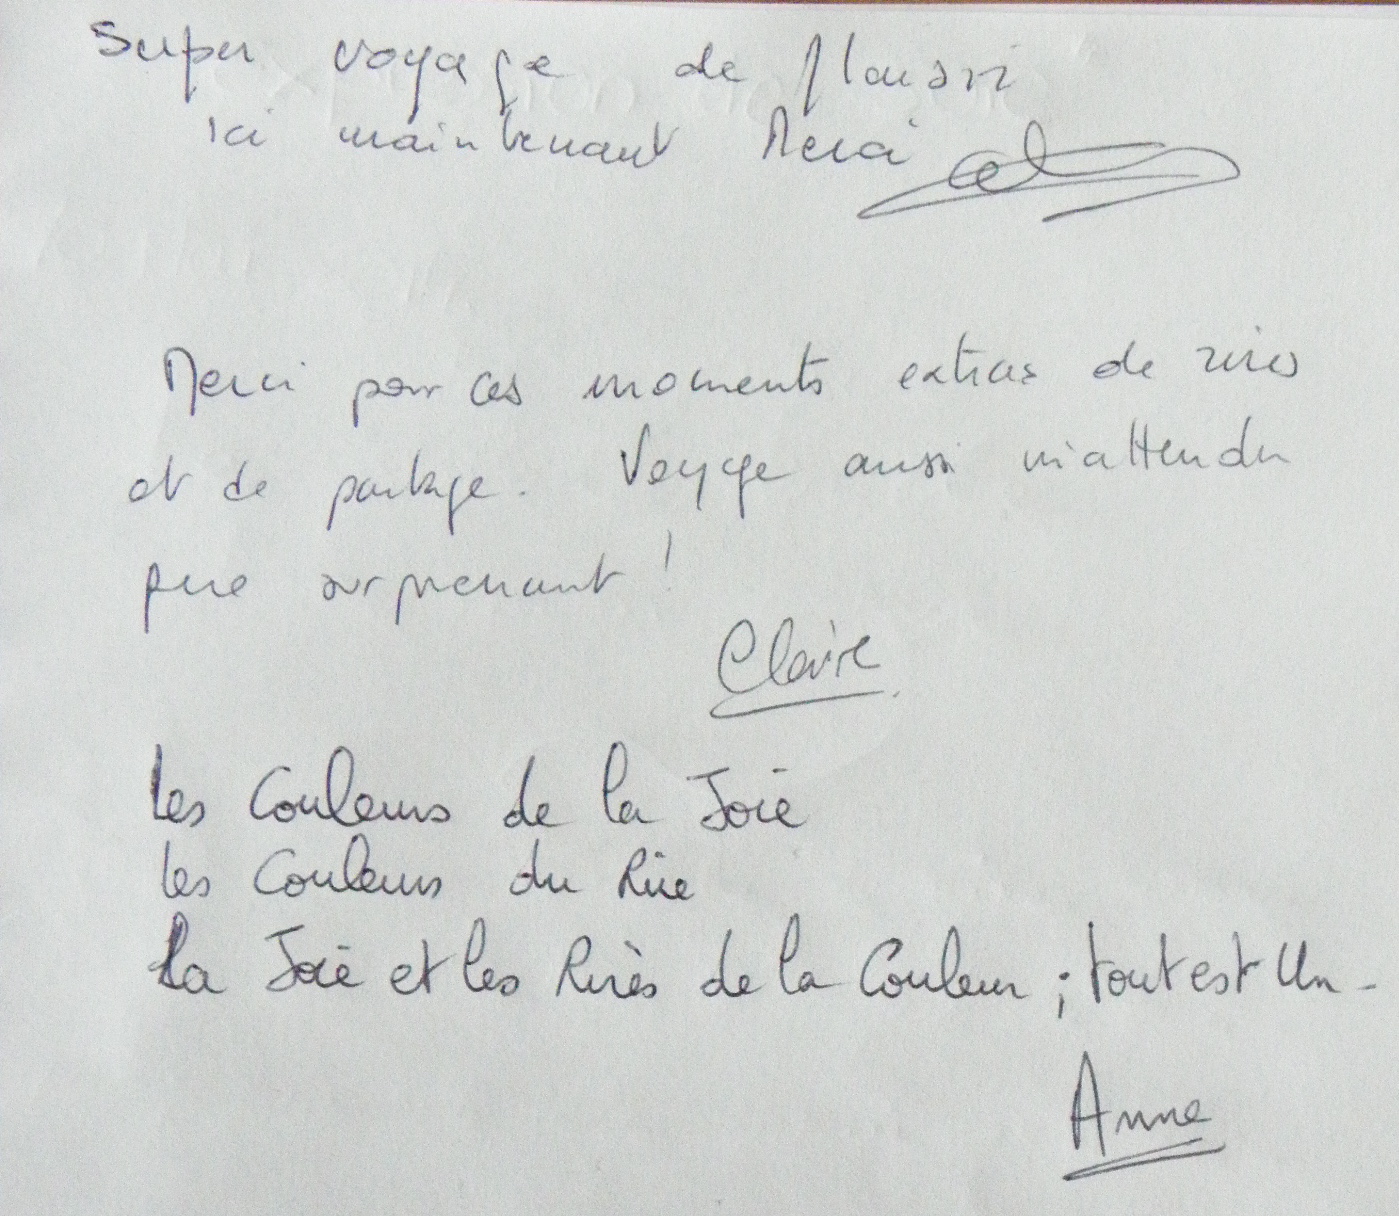 Super voyage de plaisir
ici maintenant Merci
Merci pour ces moments extras de rires
et de partage. Voyage aussi inattendu
que surprenant !
Claire
Les Couleurs de la Joie
les Couleurs du Rire
La Joie et les Rires de la Couleur ; tout est Un -
Anne